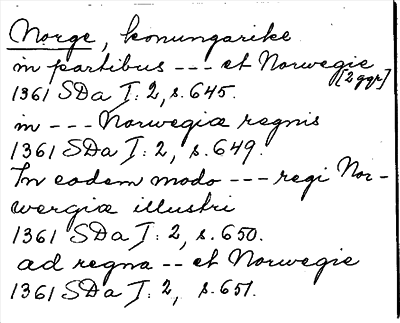 Norge, konungarike
in partibus --- et Norwegie
[2 ggr]
1361 SDa I: 2, s. 645.
in --- Norwegiæ regnis
1361 SDa I: 2, s. 649.
In eodem modo --- regi Nor-
wergiæ illustri
1361 SDa I: 2, s. 650.
ad regna -- et Norwegie
1361 SDa I: 2, s. 651.